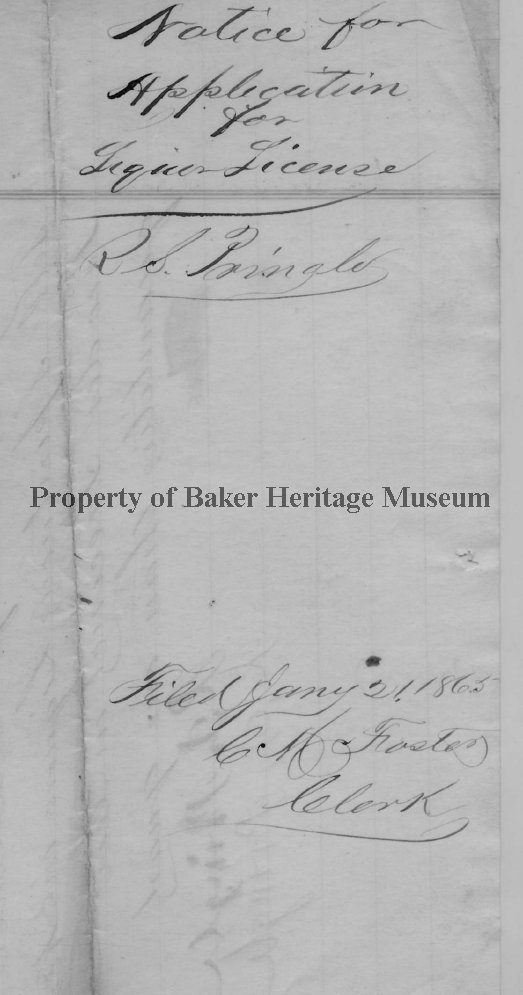 Notice for
Application
for
Liquor License
R S. Pringle
Property of Baker Heritage Museum
Filed Jany 21, 1865
C M Foster
Clerk